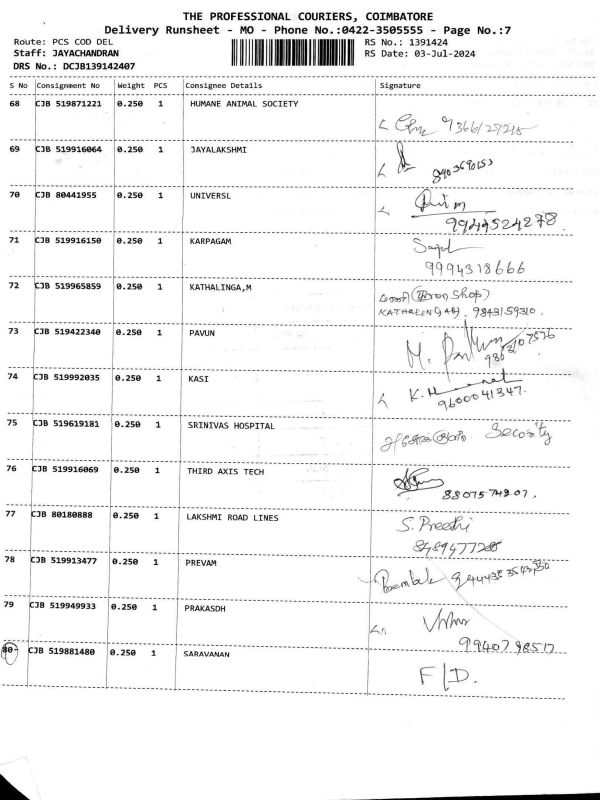 THE PROFESSIONAL COURIERS, COIMBATORE
Delivery Runsheet - MO - Phone No.:0422-3505555 - Page No.:7
Route: PCS COD DEL RS No.: 1391424
Staff: JAYACHANDRAN RS Date: 03-Jul-2024
DRS No.: DCJB139142407
S No Consignment No Weight PCS Consignee Details Signature
68 CJB 519871221 0.250 1 HUMANE ANIMAL SOCIETY
69 CJB 519916064 0.250 1 JAYALAKSHMI
70 CJB 80441955 0.250 1 UNIVERSL
9944524278.
71 CJB 519916150 0.250 1 KARPAGAM
9994318666
72 CJB 519965859 0.250 1 KATHALINGA,M
Shop)
9843159310.
73 CJB 519422340 0.250 1 PAVUN
74 CJB 519992035 0.250 1 KASI
9600041347.
75 CJB 519619181 0.250 1 SRINIVAS HOSPITAL
Security
76 CJB 519916069 0.250 1 THIRD AXIS TECH
77 CJB 80180888 0.250 1 LAKSHMI ROAD LINES
S. Preethi
78 CJB 519913477 0.250 1 PREVAM
79 CJB 519949933 0.250 1 PRAKASDH
80 CJB 519881480 0.250 1 SARAVANAN
F/D.